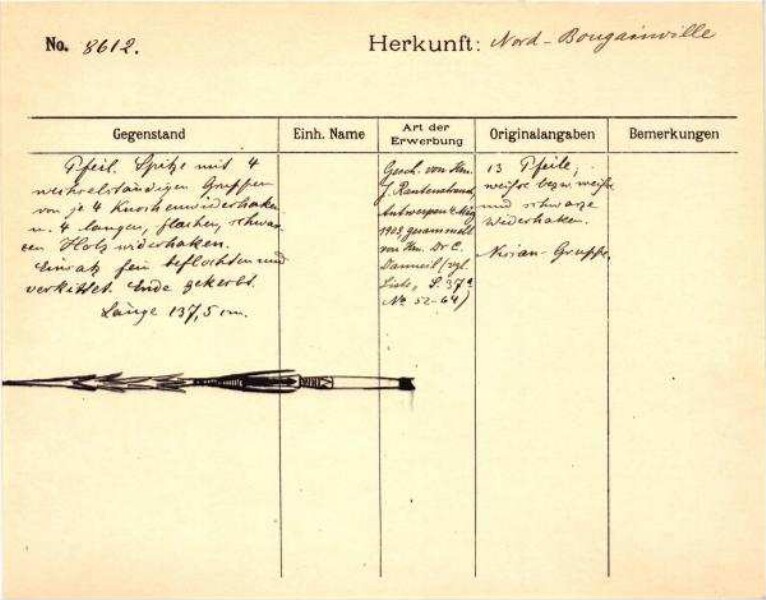 No. 8612.
Herkunft: Nord-Bougainville
Gegenstand
Einh. Name
Art der Erwerbung
Originalangaben
Bemerkungen
Pfeil. Spitze mit 4
wechselständigen Gruppen
von je 4 Knochenwiderhaken
u. 4 langen, flachen, schwar-
zen Holzwiderhaken.
Einsatz fein beflochten und
verkittet. Ende gekerbt.
Länge 137,5 cm.
Gesch. von Hrn.
J. Rautenstrauch,
Antwerpen 4. März
1903, gesammelt
von Hrn. Dr C.
Damneil (vgl.
Liste, S. 37a
No 52-64)
13 Pfeile,
weiße bezw. weiße
und schwarze
Widerhaken.
Nissan-Gruppe.